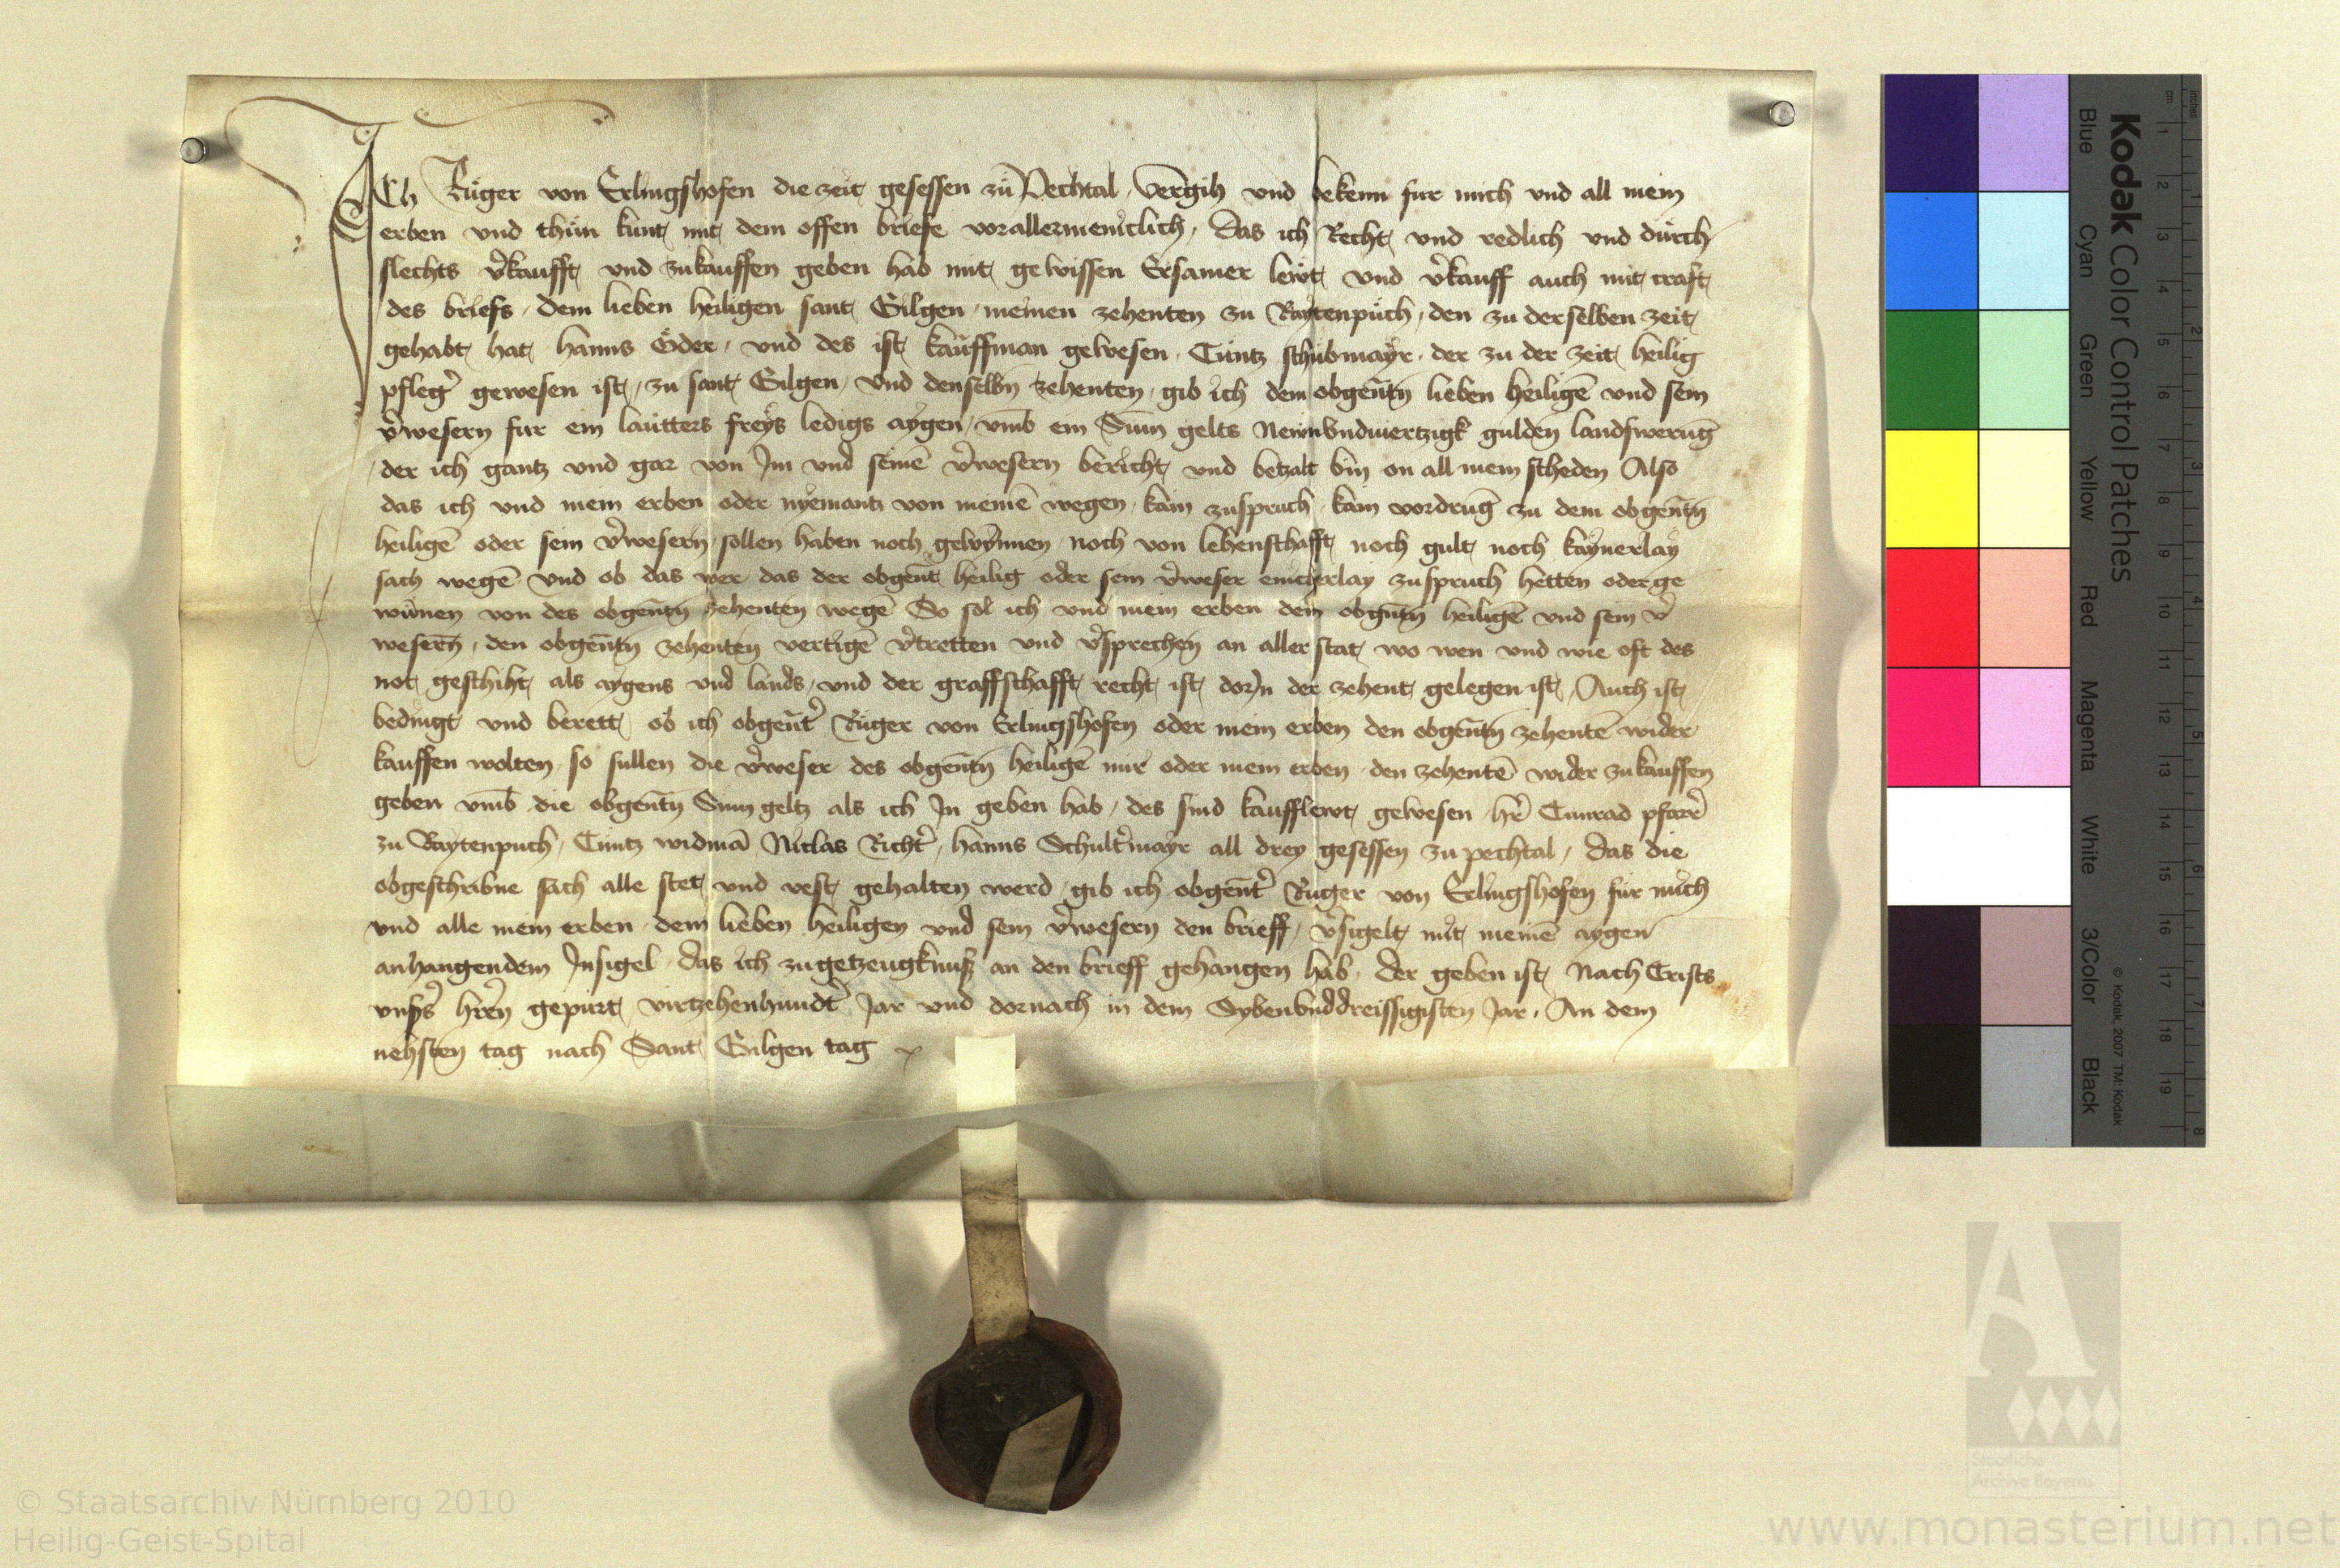 Ich Rüger von Erlingshofen die zeit gesessen zu Pechtal vergih und bekenn fur mich und all mein
erben und thün kunt mit dem offen briefe vor allermeniclich, das ich Recht und redlich und dürch
slechts v̾kaufft und zukauffen geben hab mit gewissen Ersamer lewt und v̾kauff auch mit craft
des briefs, dem lieben heiligen sant Gilgen meinen zehenten zu Raytenpüch, den zu derselben zeit
gehabt hat hanns Öder, und des ist kauffman gewesen Cüntz schübmayr der zu der zeit heilig
pfleg̾ gewesen ist, zu sant Gilgen, Und denselbn̄ zehenten gib ich dem obgen̄tn̄ lieben heiligē und sein
v̾wesern fur ein lautters freys ledigs aygen, vmb̄ ein Sum̄ gelts Newnvndviertzigk gulden landswerūg
der ich gantz und gar von Im und seinē v̾wesern bericht und betzalt bin on all mein scheden Also
das ich und mein erben oder nyemantz von meinē wegen kain zuspruch kain vordrūg zu dem obgen̄tn̄
heiligē oder sein v̾wesern sollen haben noch gewynnen noch von lehenschafft noch gult noch kaynerlay
sach wegē und ob das wer das der obgen̄t heilig oder sein v̾weser einicherlay zuspruch hetten oder ge
wünen von des obgen̄tn̄ zehenten wegē So sol ich und mein erben dem obgn̄tn̄ heiligē und sein v̾
wesern̄, den obgen̄tn̄ zehenten vertigē v̾tretten und v̾sprechen an aller stat wo wen und wie oft des
not geschiht als aygens und lands, und der graffschafft recht ist dorJn der zehent gelegen ist, Auch ist
bedingt und berett ob ich obgen̄t̾ Rüger von Erlingshofen oder mein erben den obgen̄tn̄ zehentē wider
kauffen wolten so sullen die v̾weser des obgen̄tn̄ heiligē mir oder mein erben den zehentē wider zu kauffen
geben vmb̄ die obgen̄tn̄ Sum geltz als ich In geben hab, des sind kaufflewt gewesen hr̾ Cunrad pfarr̾
zu Raytenpuch, Cüntz widmā Niclas Richt̾, hanns Schult̾mayr all drey gesessen zu pechtal, das die
obgeschribne sach alle stet und vest gehalten werd gib ich obgen̄t̾ Rüger von Erlingshofen für mich
und alle mein erben dem lieben heiligen und sein v̾wesern den brieff, v̾sigelt mit meinē aygen
anhangendem Insigel das ich zu getzeugknuß an den brieff gehangen hab, der geben ist Nach Crists
vnßs̾ hr̾en gepürt virtzehenhundt̾ Jar und dornach in dem Sybenvnddreissigisten Jar, An dem
nehsten tag nach Sant Gilgen tag
Kodak Color Control Patches
Blue Cyan Green Yellow Red Magenta White 3/Color Black
© Kodak, 2007 TM: Kodak
cm 1 2 3 4 5 6 7 8 9 10 11 12 13 14 15 16 17 18 19
inches 1 2 3 4 5 6 7 8
A
Staatliche
Archive Bayerns
© Staatsarchiv Nürnberg 2010
Heilig-Geist-Spital
www.monasterium.net